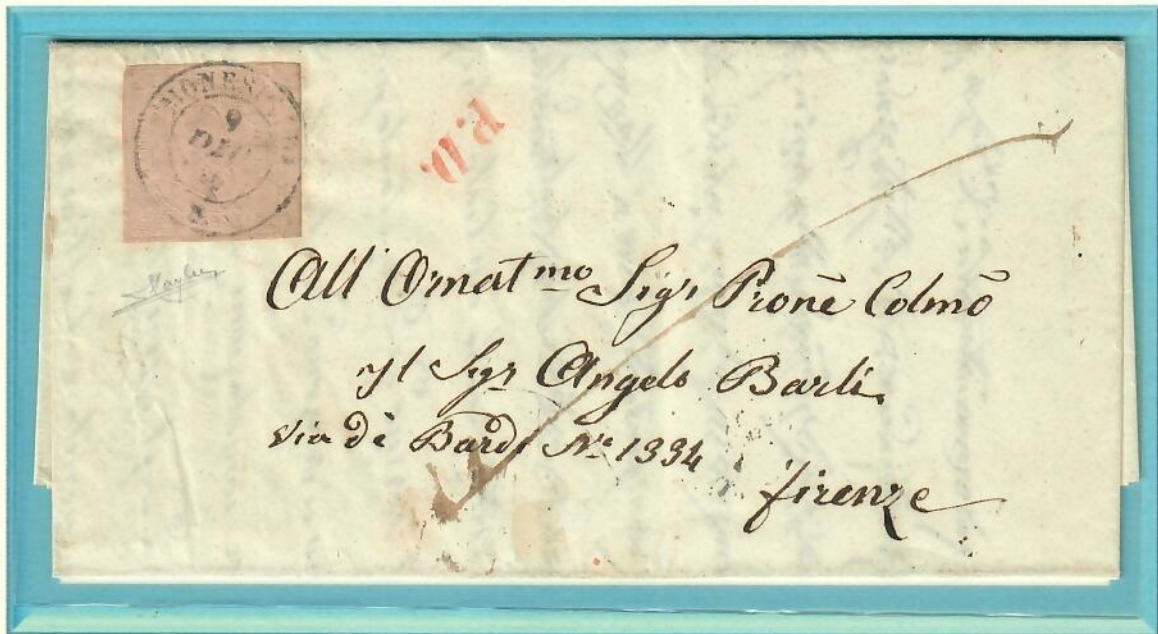 9
P.D.
All' Ornat.mo Sigr Prone Colmo
Il Sigr Angelo Barli
Via de Bardi No 1334
Firenze